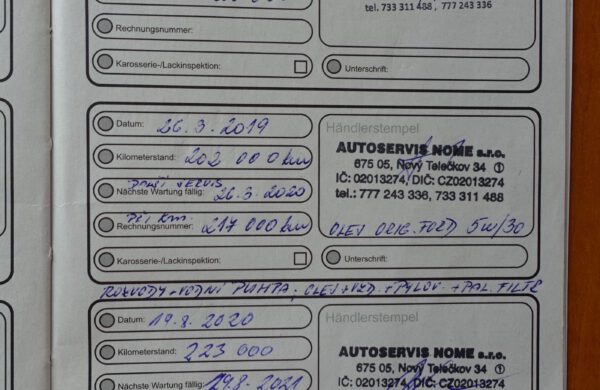 tel. 733 311 488, 777 243 336
Rechnungsnummer:
Karosserie-/Lackinspektion:
Unterschrift:
Datum: 26. 3. 2019
Händlerstempel
AUTOSERVIS NOME s.r.o.
675 05, Nový Telečkov 34 ①
IČ: 02013274, DIČ: CZ02013274
tel.: 777 243 336, 733 311 488
Kilometerstand: 202 000 km
SERVIS
Nächste Wartung fällig: 26.3. 2020
PŘI KM.
Rechnungsnummer: 217 000 km
OLEJ ORIG. FORD 5W/30
Karosserie-/Lackinspektion:
Unterschrift:
ROZVODY + VODNÍ PUMPA, OLEJ + VZD. + PYLOV. + PAL. FILTR
Datum: 19. 8. 2020
Händlerstempel
Kilometerstand: 223 000
AUTOSERVIS NOME s.r.o.
675 05, Nový Telečkov 34 ①
IČ: 02013274, DIČ: CZ02013274
Nächste Wartung fällig: 19.8. 2021